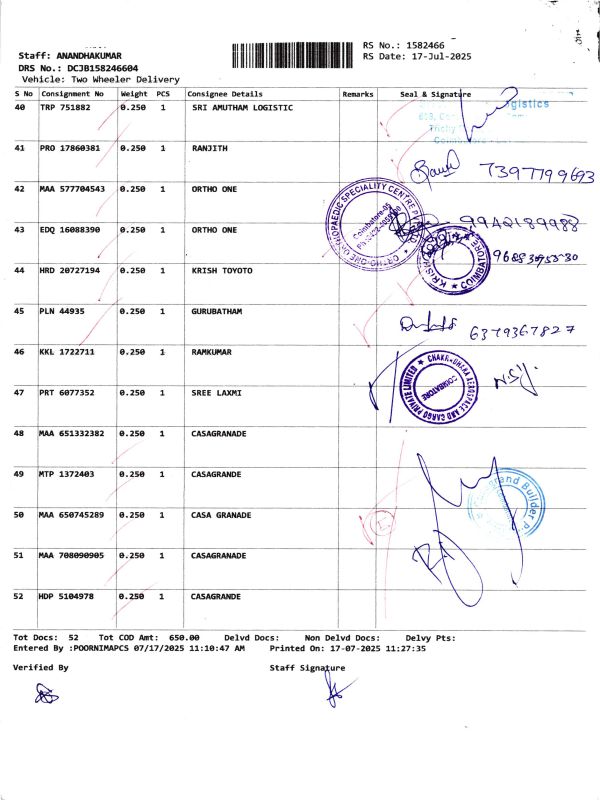 Staff: ANANDHAKUMAR
DRS No.: DCJB158246604
Vehicle: Two Wheeler Delivery
RS No.: 1582466
RS Date: 17-Jul-2025
S No Consignment No Weight PCS Consignee Details Remarks Seal & Signature
40 TRP 751882 0.250 1 SRI AMUTHAM LOGISTIC
41 PRO 17860381 0.250 1 RANJITH
7397799693
42 MAA 577704543 0.250 1 ORTHO ONE
43 EDQ 16088390 0.250 1 ORTHO ONE
44 HRD 20727194 0.250 1 KRISH TOYOTO
COIMBATORE
45 PLN 44935 0.250 1 GURUBATHAM
6379367827
46 KKL 1722711 0.250 1 RAMKUMAR
COIMBATORE
47 PRT 6077352 0.250 1 SREE LAXMI
48 MAA 651332382 0.250 1 CASAGRANADE
49 MTP 1372403 0.250 1 CASAGRANDE
50 MAA 650745289 0.250 1 CASA GRANADE
51 MAA 708090905 0.250 1 CASAGRANADE
52 HDP 5104978 0.250 1 CASAGRANDE
Tot Docs: 52 Tot COD Amt: 650.00 Delvd Docs: Non Delvd Docs: Delvy Pts:
Entered By :POORNIMAPCS 07/17/2025 11:10:47 AM Printed On: 17-07-2025 11:27:35
Verified By Staff Signature